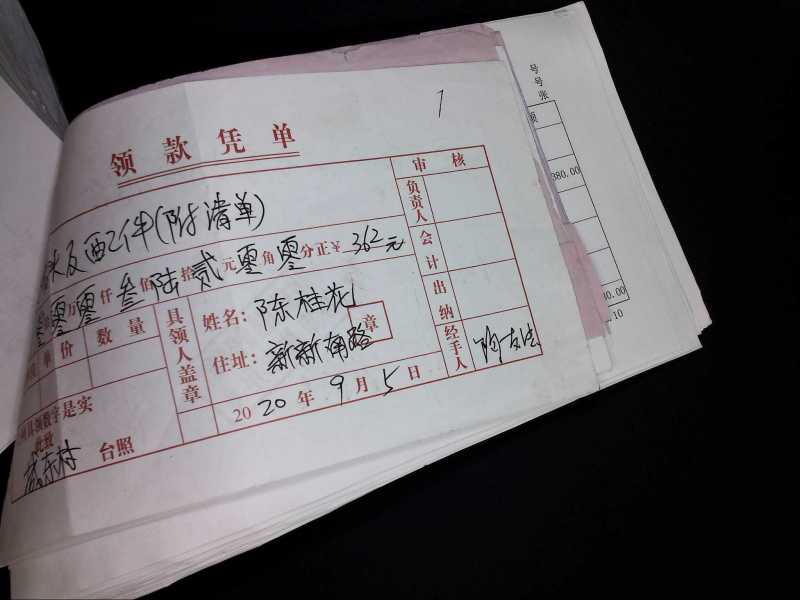 领款凭单
审核
及配件(附清单)
零万零仟叁佰陆拾贰元零角零分正¥362元
单价 数量
具领人盖章
姓名：陈桂花
住址：新新南路
章
2020年9月5日
负责人
会计
出纳
经手人
具领数字是实
此致
东村 台照
号
号
张
380.00
00.00